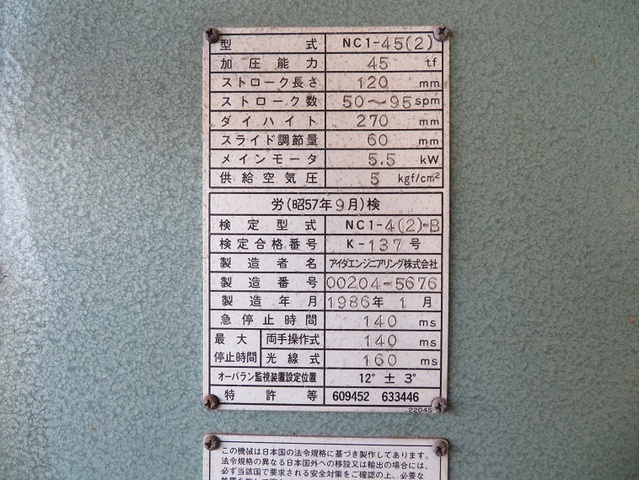 型式 NC1-45(2)
加圧能力 45 tf
ストローク長さ 120 mm
ストローク数 50～95 spm
ダイハイト 270 mm
スライド調節量 60 mm
メインモータ 5.5 kW
供給空気圧 5 kgf/cm²
労(昭57年9月)検
検定型式 NC1-4(2)-B
検定合格番号 K-137号
製造者名 アイダエンジニアリング株式会社
製造番号 00204-5676
製造年月 1986年1月
急停止時間 140 ms
最大停止時間 両手操作式 140 ms
光線式 160 ms
オーバラン監視装置設定位置 12° ± 3°
特許等 609452 633446
22045
この機械は日本国の法令規格に基づき製作してあります。
法令規格の異なる日本国外への移設又は輸出の場合には、
必ず当該国で要求される安全対策をご確認の上、必要な